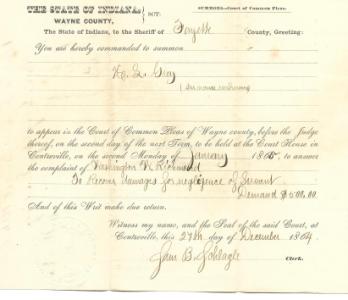 THE STATE OF INDIANA, } SCT: SUMMONS—Court of Common Pleas.
WAYNE COUNTY,
The State of Indiana, to the Sheriff of Fayette County, Greeting:
You are hereby commanded to summon
to appear in the Court of Common Pleas of Wayne county, before the Judge
thereof, on the second day of the next Term, to be held at the Court House in
Centreville, on the second Monday of January 1865, to answer
the complaint of Washington W.
To Recover damages for negligence of Servant
Demand $500.00
And of this Writ make due return.
Witness my name, and the Seal of the said Court, at
Centreville, this 27th day of December 1864
B. Schlagle Clerk.